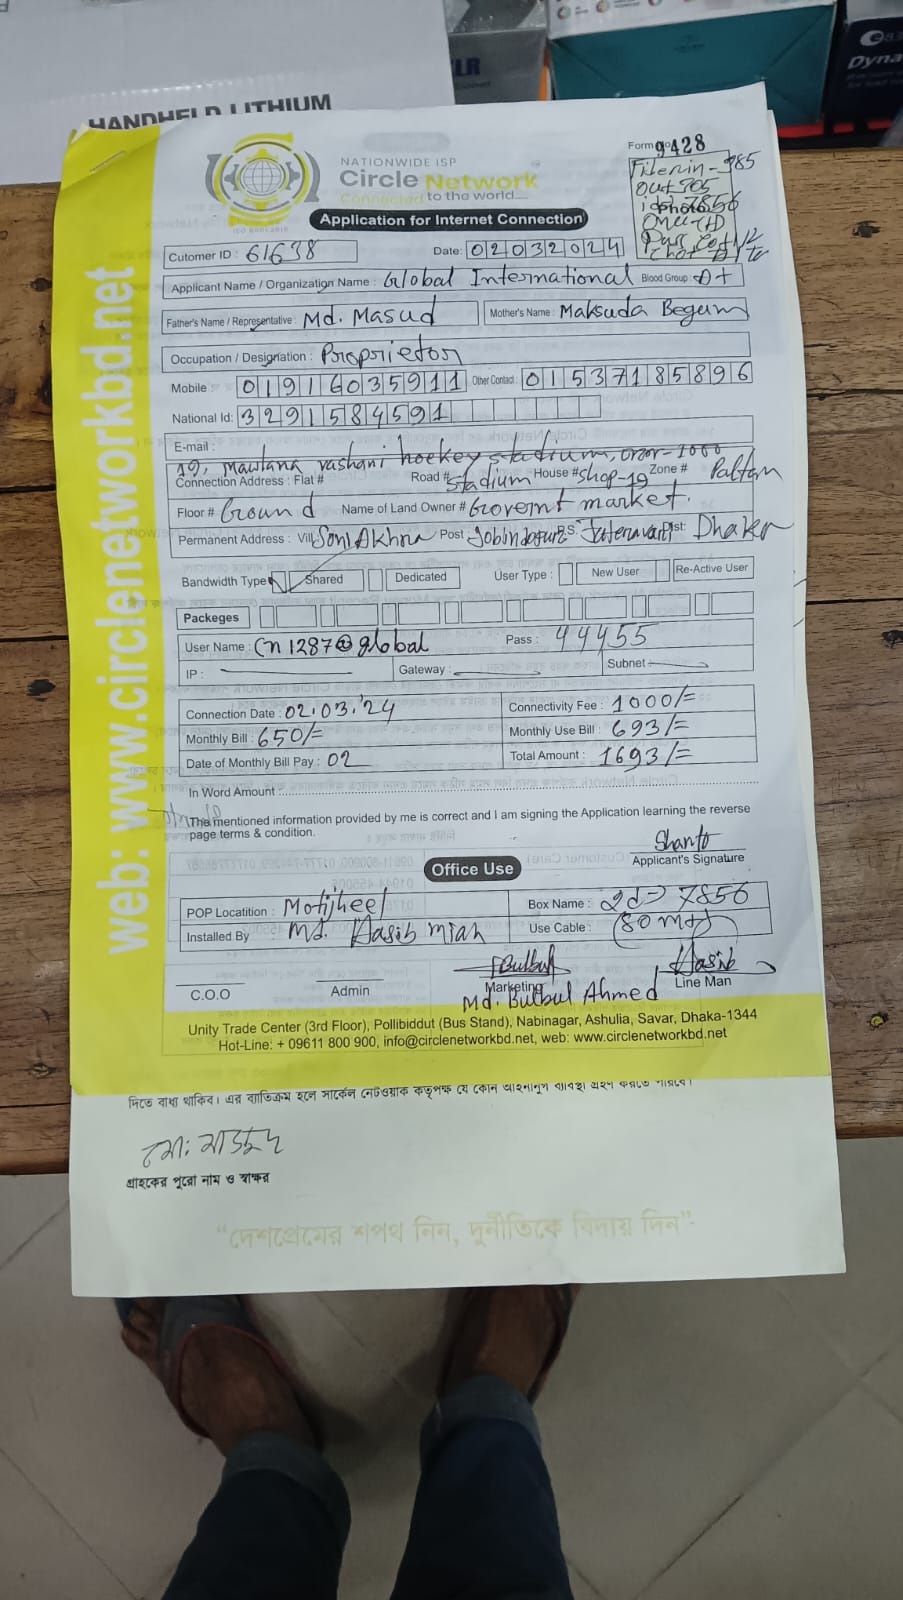 HANDHELD LITHIUM
Dyna
web: www.circlenetworkbd.net
NATIONWIDE ISP
Circle Network
Connected to the world....
ISO 9001:2015
Form 9428
Application for Internet Connection
Cutomer ID : 61638 Date: 02032024
Applicant Name / Organization Name : Global International Blood Group : A+
Father's Name / Representative : Md. Masud Mother's Name : Maksuda Begum
Occupation / Designation : Proprietor
Mobile : 01916035911 Other Contact : 01537185896
National Id: 3291584591
E-mail :
19, Maulana vashani hockey stadium,
Connection Address : Flat # Road # Stadium House # shop-19 Zone # Paltan
Floor # Ground Name of Land Owner # Governt market.
Permanent Address : Vill Soni Akhra Post P.S: Dist: Dhaka
Bandwidth Type Shared Dedicated User Type : New User Re-Active User
Packeges
User Name : Cn1287@global Pass : 44455
IP : Gateway : Subnet
Connection Date : 02.03.'24 Connectivity Fee : 1000/=
Monthly Bill : 650/= Monthly Use Bill : 693/=
Date of Monthly Bill Pay : 02 Total Amount : 1693/=
In Word Amount
The mentioned information provided by me is correct and I am signing the Application learning the reverse
page terms & condition.
Shanto
Applicant's Signature
Office Use
POP Locatition : Motijheel Box Name : 7856
Installed By : Md. Hasib Miah Use Cable : (80 Mtr)
Bulbul Hasib
C.O.O Admin Marketing Line Man
Md. Bulbul Ahmed
Unity Trade Center (3rd Floor), Pollibiddut (Bus Stand), Nabinagar, Ashulia, Savar, Dhaka-1344
Hot-Line: + 09611 800 900, info@circlenetworkbd.net, web: www.circlenetworkbd.net
দিতে বাধ্য থাকিব। এর ব্যতিক্রম হলে সার্কেল নেটওয়ার্ক কতৃপক্ষ যে কোন আইনানুগ ব্যবস্থা গ্রহণ করতে পারবে।
মো: মাসুদ
গ্রাহকের পুরো নাম ও স্বাক্ষর
“দেশপ্রেমের শপথ নিন, দুর্নীতিকে বিদায় দিন”